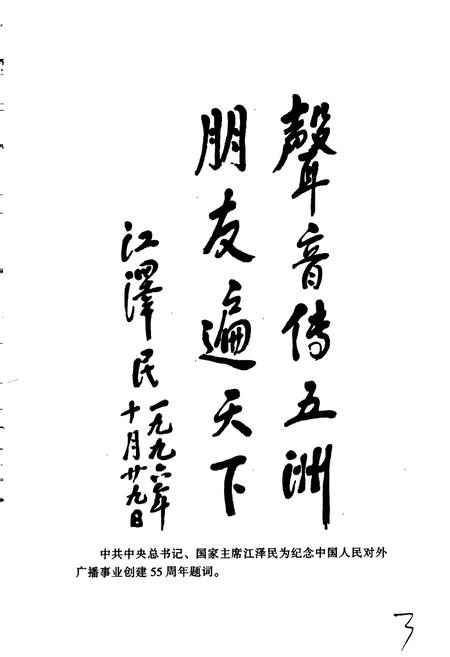 聲音传五洲
朋友遍天下
江澤民
一九九六年
十月廿九日
中共中央总书记、国家主席江泽民为纪念中国人民对外
广播事业创建 55 周年题词。
3